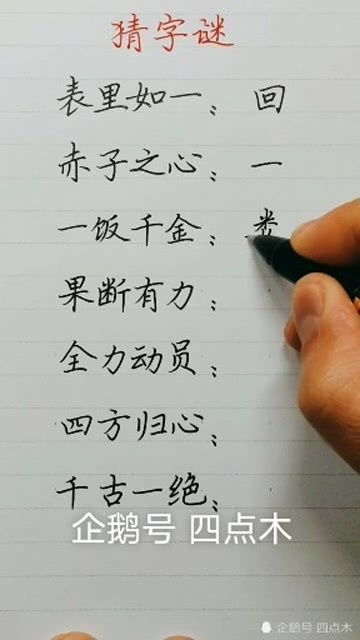 猜字谜
表里如一；回
赤子之心；一
一饭千金；
果断有力；
全力动员；
四方归心；
千古一绝；
企鹅号 四点木
企鹅号 四点木